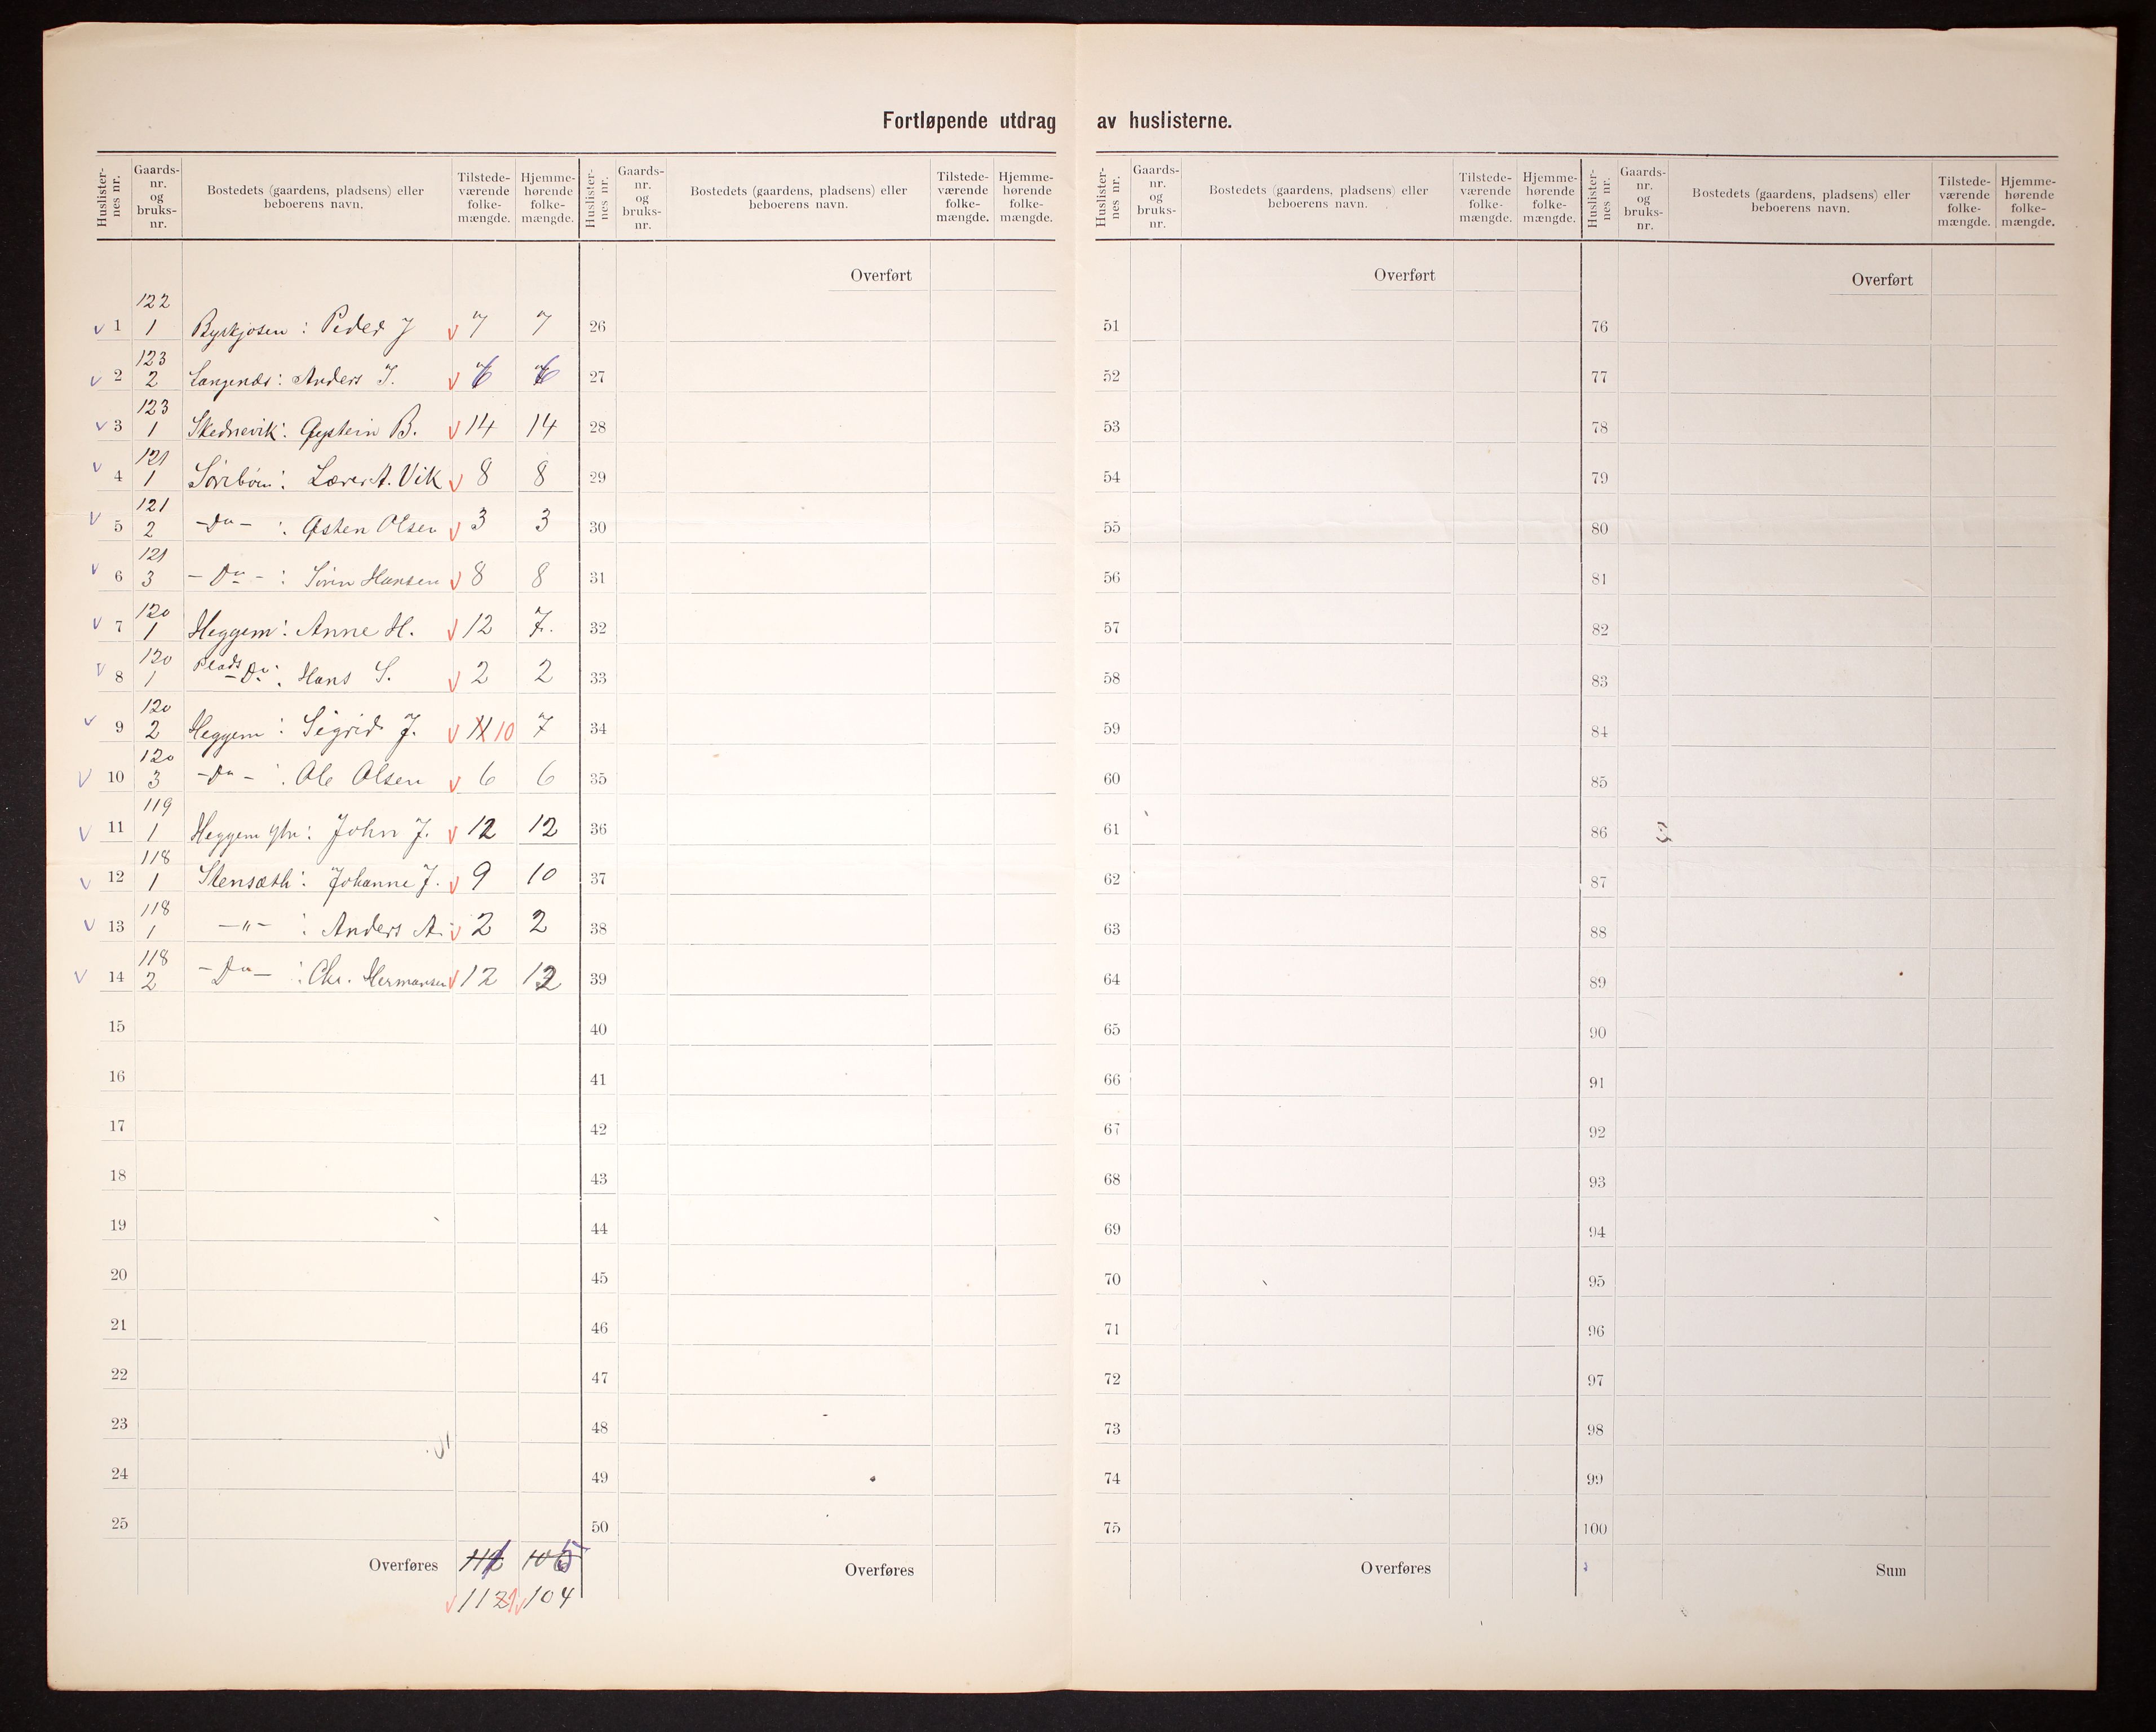 Fortløpende utdrag av huslisterne.
Huslister-nes nr. Gaards-nr. og bruks-nr. Bostedets (gaardens, pladsens) eller beboerens navn. Tilstede-værende folke-mængde. Hjemme-hørende folke-mængde.
Huslister-nes nr. Gaards-nr. og bruks-nr. Bostedets (gaardens, pladsens) eller beboerens navn. Tilstede-værende folke-mængde. Hjemme-hørende folke-mængde.
Huslister-nes nr. Gaards-nr. og bruks-nr. Bostedets (gaardens, pladsens) eller beboerens navn. Tilstede-værende folke-mængde. Hjemme-hørende folke-mængde.
Huslister-nes nr. Gaards-nr. og bruks-nr. Bostedets (gaardens, pladsens) eller beboerens navn. Tilstede-værende folke-mængde. Hjemme-hørende folke-mængde.
Overført Overført Overført
1 122 1 Byskjosen : Peder J 7 7 26 51 76
2 123 2 Langenes : Anders J. 6 6 27 52 77
3 123 1 Skednevik : Øystein B. 14 14 28 53 78
4 121 1 Söribön : Lærer A. Vik 8 8 29 54 79
5 121 2 -Do- : Østen Olsen 3 3 30 55 80
6 121 3 -Do- : Sören Hansen 8 8 31 56 81
7 120 1 Heggem : Anne H. 12 7. 32 57 82
8 120 1 Plads Do : Hans S. 2 2 33 58 83
9 120 2 Heggem : Sigrid J. 11 10 7 34 59 84
10 120 3 -Do- : Ole Olsen 6 6 35 60 85
11 119 1 Heggem ytre : John J. 12 12 36 61 86
12 118 1 Stensæth : Johanne J. 9 10 37 62 87
13 118 1 -"- : Anders A. 2 2 38 63 88
14 118 2 -Do- : Chr. Hermansen 12 12 39 64 89
15 40 65 90
16 41 66 91
17 42 67 92
18 43 68 93
19 44 69 94
20 45 70 95
21 46 71 96
22 47 72 97
23 48 73 98
24 49 74 99
25 50 75 100
Overføres 105 Overføres Overføres Sum
1121 104